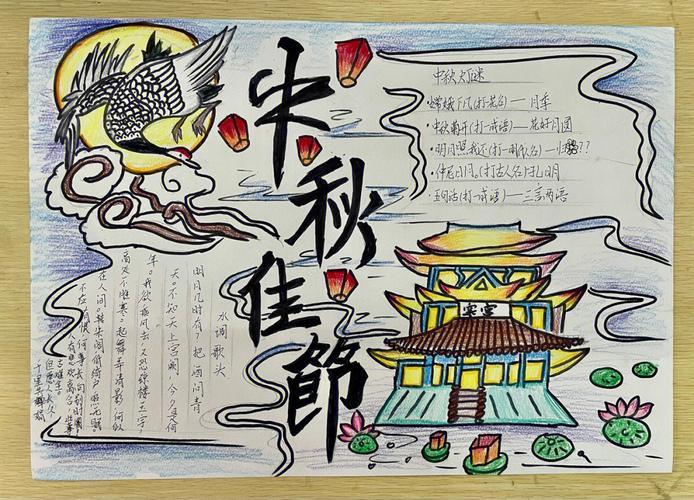 中秋佳節
中秋灯谜
嫦娥下凡(打花名)——月季
中秋菊开(打一成语)——花好月圆
明月照我还(打一明代人名)——归
仲尼日月。(打古人名)孔明
五句话(打一成语)——三言两语
水调歌头
明月几时有?把酒问青
天。不知天上宫阙,今夕是何
年。我欲乘风去,又恐琼楼玉宇,
高处不胜寒。起舞弄清影,何似
在人间。转朱阁,低绮户,照无眠。
不应有恨,何事长向别时圆
人有悲欢离合
但愿人长久,
千里共婵娟